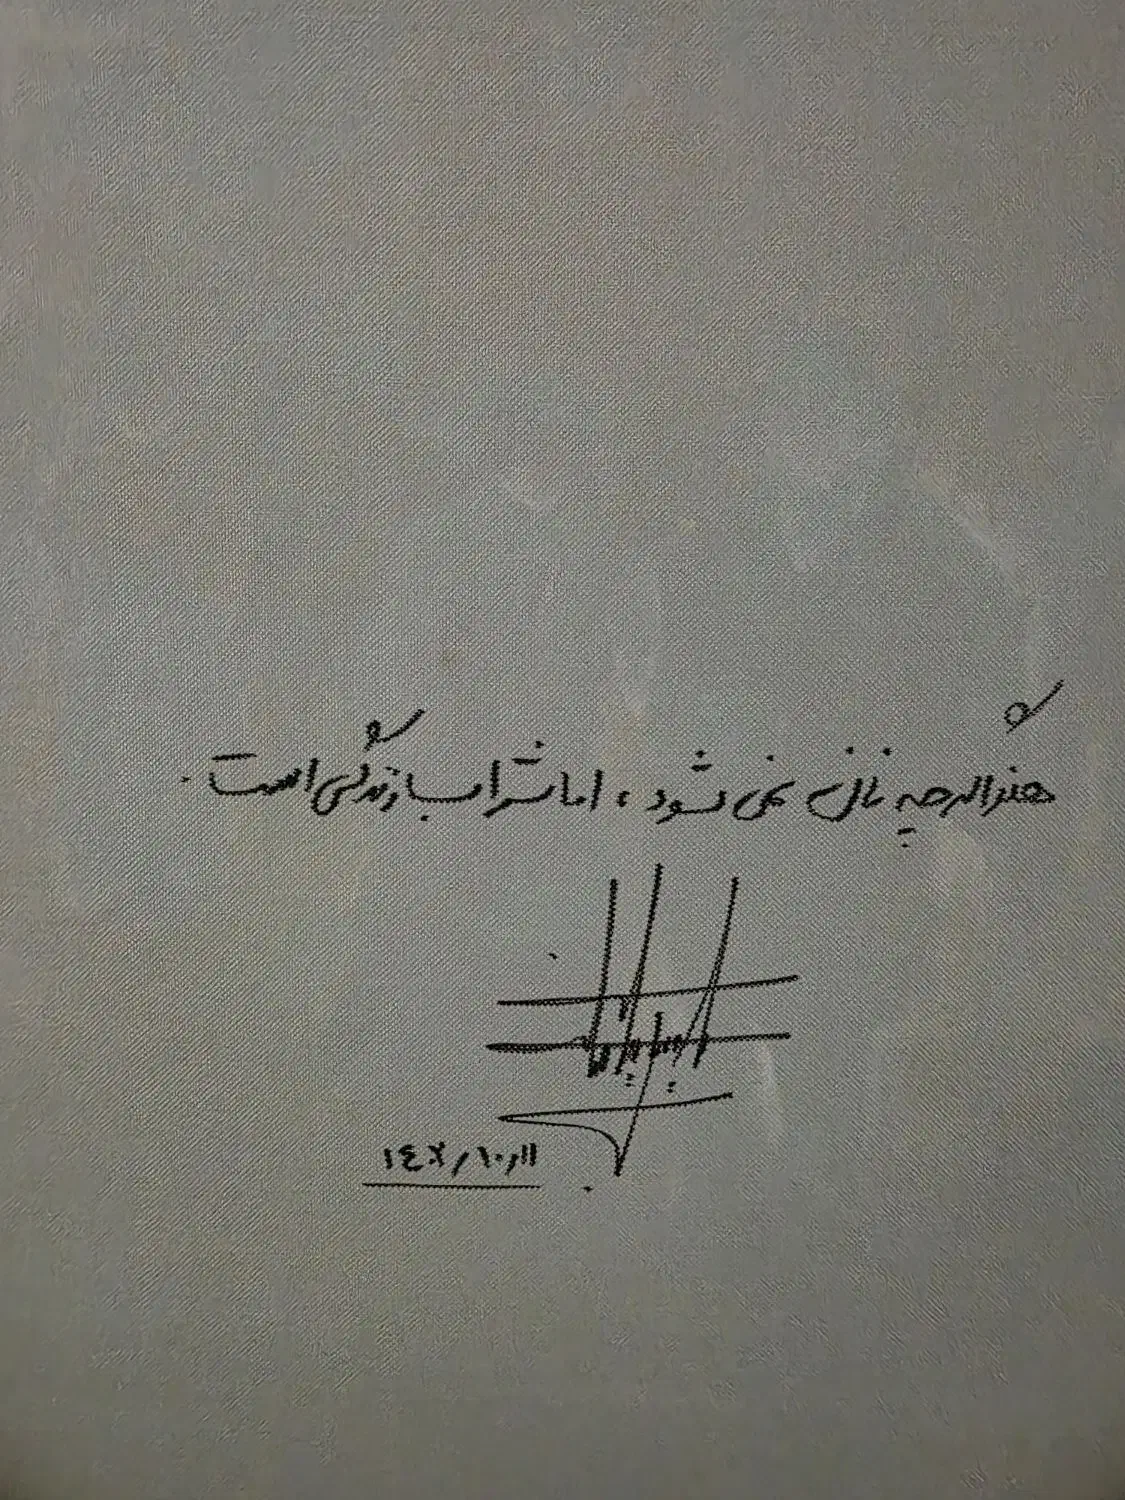 هنر اگر چه نان نمی شود ، اما شراب زندگی است .